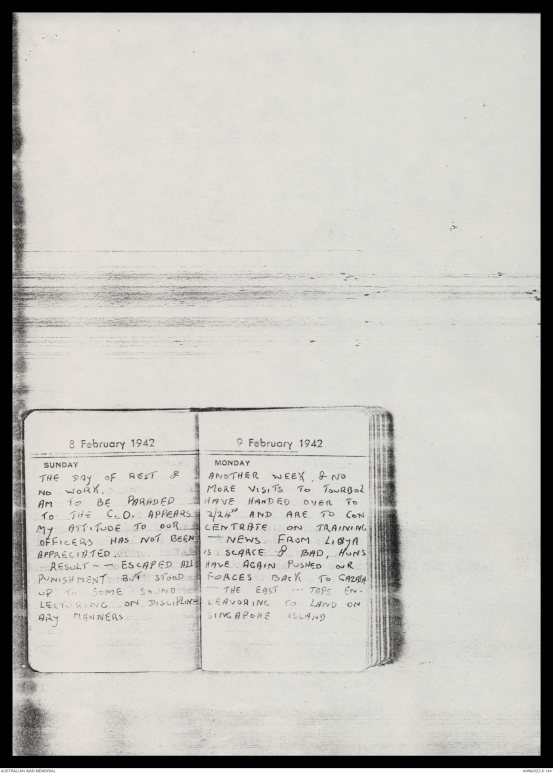 8 February 1942
SUNDAY
THE DAY OF REST &
NO WORK.
AM TO BE PARADED
TO THE C.O. APPEARS
MY ATTITUDE TO OUR
OFFICERS HAS NOT BEEN
APPRECIATED.
RESULT - - ESCAPED ALL
PUNISHMENT BUT STOOD
UP TO SOME SOUND
LECTURING ON DISCIPLIN-
ARY MANNERS
9 February 1942
MONDAY
ANOTHER WEEK, & NO
MORE VISITS TO TOURBOL
HAVE HANDED OVER TO
2/24th AND ARE TO CON
CENTRATE ON TRAINING
- NEWS FROM LIBYA
IS SCARCE & BAD, HUNS
HAVE AGAIN PUSHED OUR
FORCES BACK TO GAZALA
THE EAST -- JAPS EN-
DEAVORING TO LAND ON
SINGAPORE ISLAND
AUSTRALIAN WAR MEMORIAL